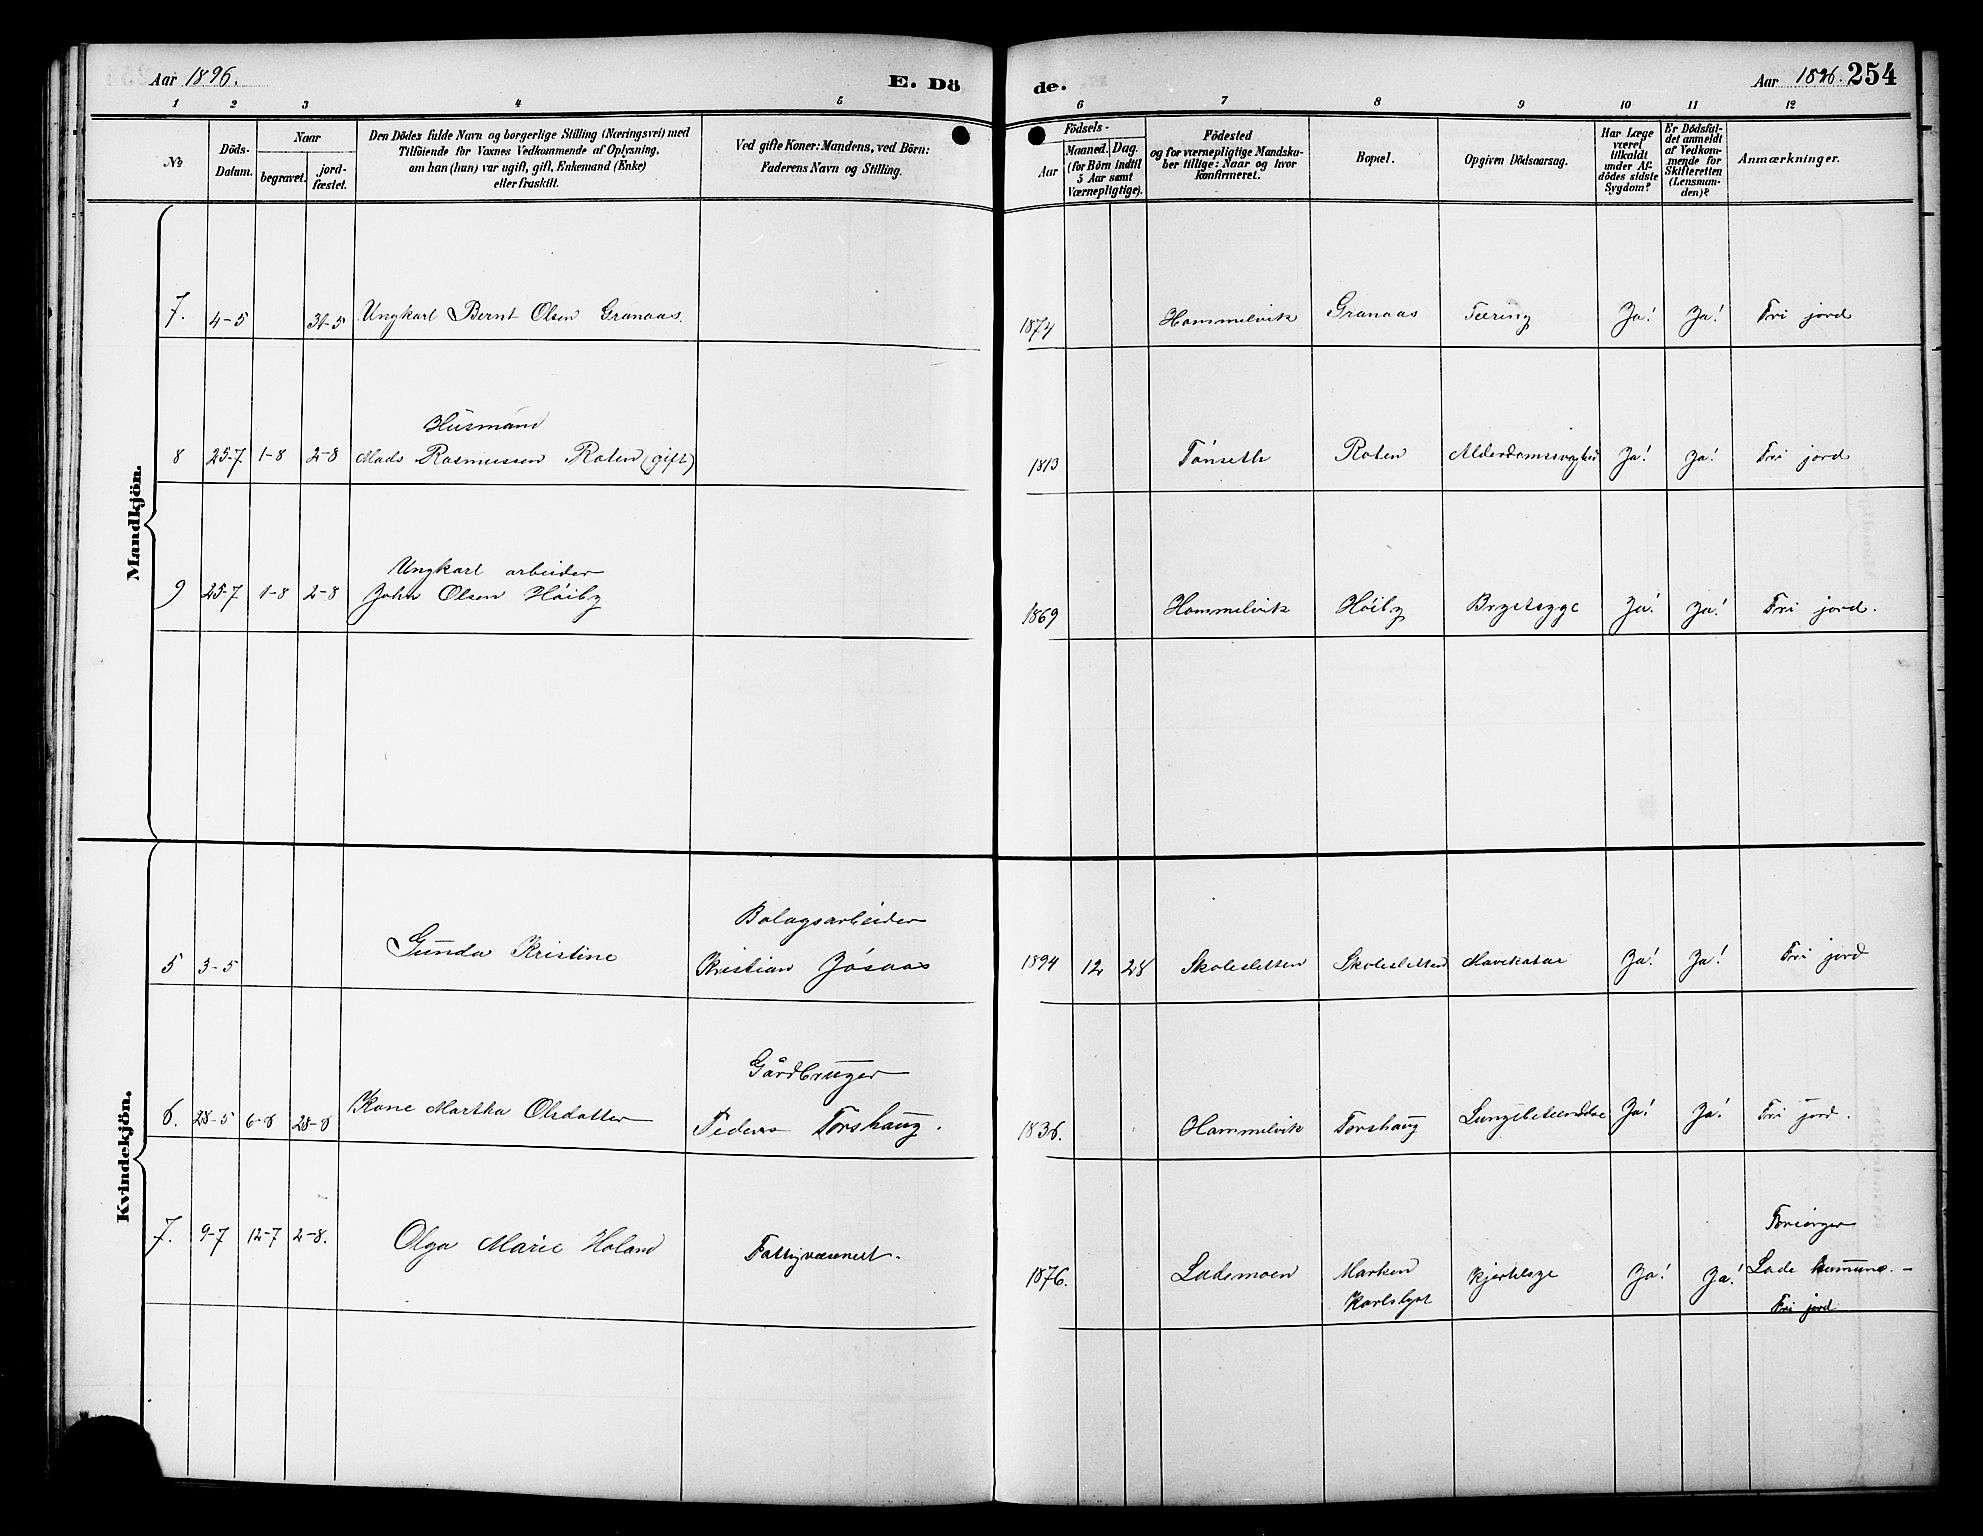 Aar 1896.
E. Dö
de.
Aar 1896. 254
1 2 3 4 5 6 7 8 9 10 11 12
No
Döds-Datum.
Naar
begravet.
jord-fæstet.
Den Dödes fulde Navn og borgerlige Stilling (Næringsvei) med
Tilföiende for Voxnes Vedkommende af Oplysning,
om han (hun) var ugift, gift, Enkemand (Enke)
eller fraskilt.
Ved gifte Koner: Mandens, ved Börn:
Faderens Navn og Stilling.
Födsels-
Aar
Maaned. Dag.
(for Börn indtil
5 Aar samt
Værnepligtige).
Födested
og for værnepligtige Mandska-
ber tillige: Naar og hvor
konfirmeret.
Bopæl.
Opgiven Dödsaarsag.
Har Læge
været
tilkaldt
under Af-
dödes sidste
Sygdom?
Er Dödsfal-
det anmeldt
af Vedkom-
mende for
Skifteretten
(Lensman-
den)?
Anmærkninger.
Mandkjön.
7. 4-5 31-5 Ungkarl Bernt Olsen Granaas. 1874 Hommelvik Granaas Tæring Ja! Ja! Fri jord
Husmand
8 25-7. 1-8 2-8 Mads Rasmussen Roten (gift) 1813 Tönseth Roten Alderdomssvaghed Ja! Ja! Fri jord
Ungkarl arbeider
9 25-7 1-8 2-8 John Olsen Höiby 1869 Hommelvik Höiby Brystsyge Ja! Ja! Fri jord.
Kvindekjön.
Bolagsarbeider
5 3-5 Gunda Kristine Kristian Jösaas 1894 12 28 Skolesletten Skolesletten Mavekatar Ja! Ja! Fri jord
Gårdbruger
6. 28-5 6-6 28-6 Kone Martha Olsdatter Peders Torshaug. 1836. Hommelvik Torshaug Lungebetændelse Ja! Ja! Fri jord.
7. 9-7 12-7 2-8. Olga Marie Holand Fattigvæsenet. 1876. Lademoen Marken Karlslyst Kjertelsyge Ja! Ja! Forsörger
Lade kommune. –
Fri jord